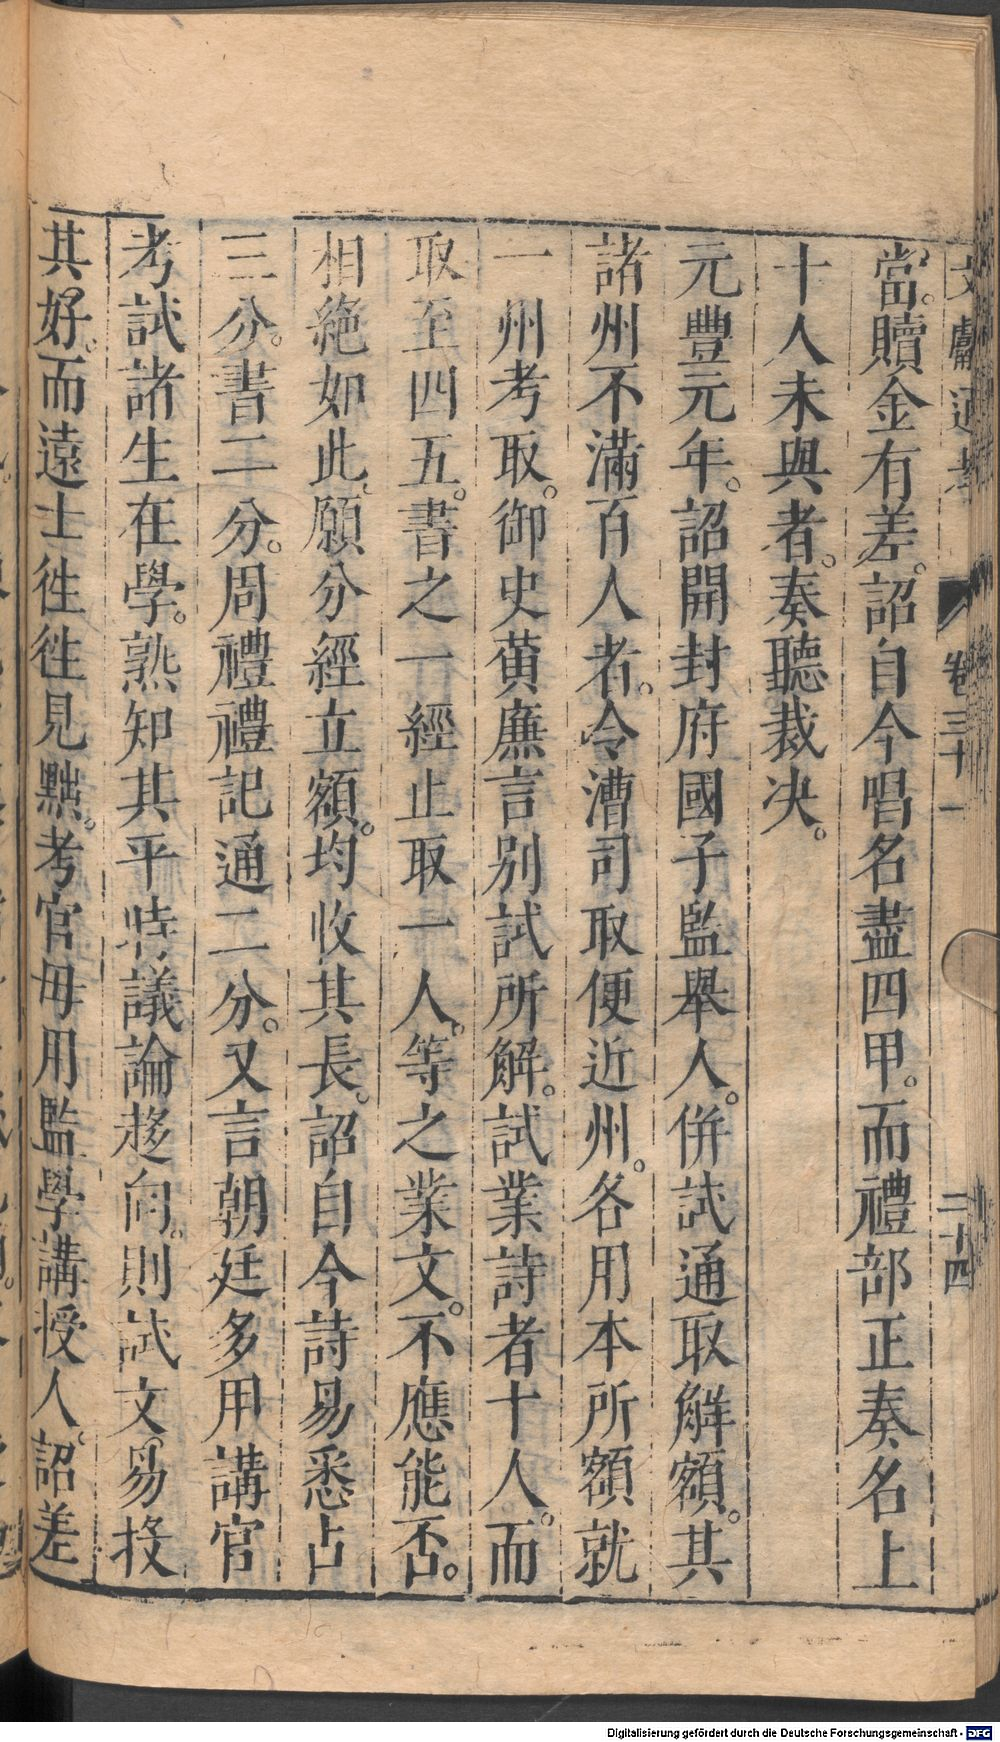 文獻通考 卷三十一 二十四
當。贖金有差。詔自今唱名盡四甲。而禮部正奏名上
十人未與者。奏聽裁决。
元豐元年。詔開封府國子監舉人。併試通取解額。其
諸州不滿百人者。令漕司取便近州。各用本所額就
一州考取。御史黄廉言别試所解。試業詩者十人。而
取至四五。書之一經止取一人。等之業文。不應能否。
相絶如此。願分經立額。均收其長。詔自今詩易悉占
三分。書二分。周禮禮記通二分。又言朝廷多用講官
考試諸生在學。熟知其平時議論趍向。則試文易投
其好。而遠士徃徃見黜。考官毋用監學講授人。詔差
Digitalisierung gefördert durch die Deutsche Forschungsgemeinschaft - DFG